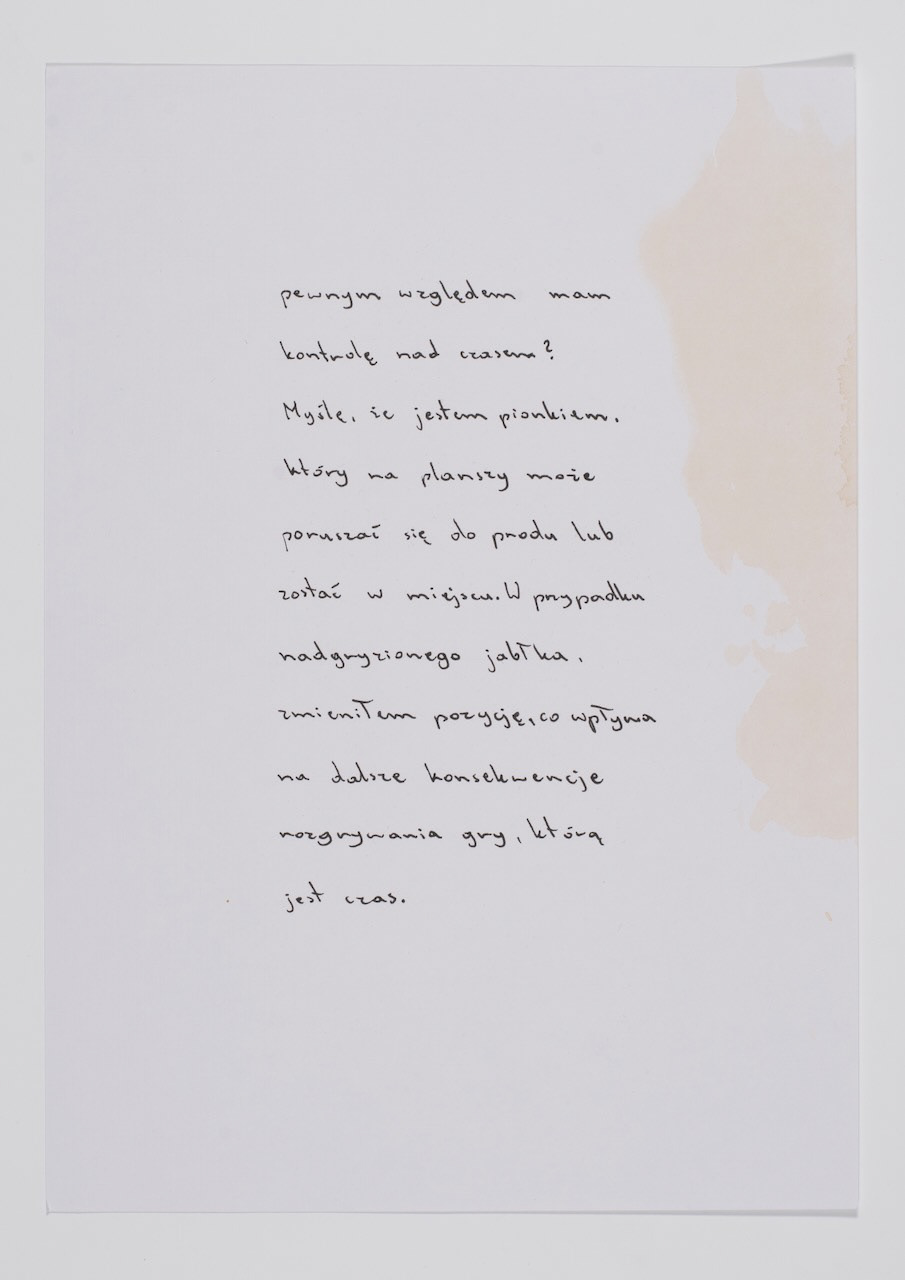 pewnym względem mam
kontrolę nad czasem?
Myślę, że jestem pionkiem,
który na planszy może
poruszać się do przodu lub
zostać w miejscu. W przypadku
nadgryzionego jabłka,
zmieniłem pozycję, co wpływa
na dalsze konsekwencje
rozgrywania gry, którą
jest czas.